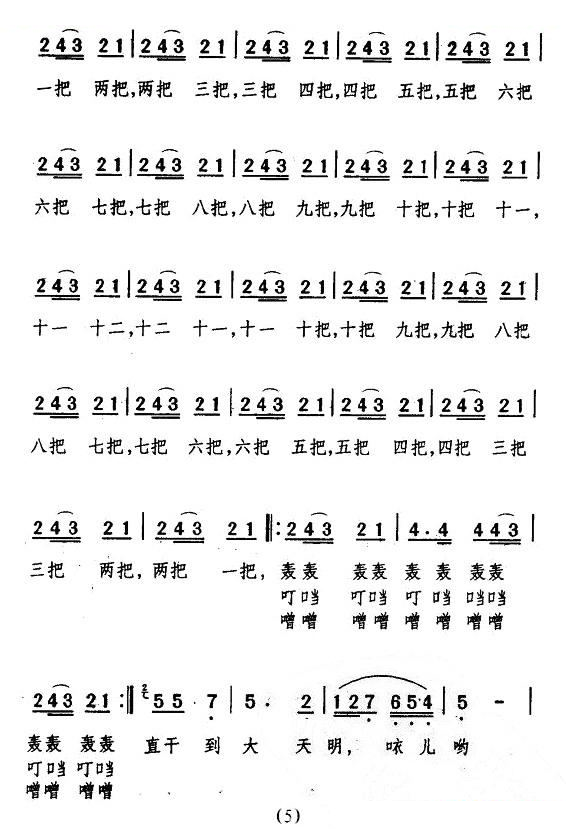 2 4 3 2 1 | 2 4 3 2 1 | 2 4 3 2 1 | 2 4 3 2 1 | 2 4 3 2 1 |
一把 两把,两把 三把,三把 四把,四把 五把,五把 六把
2 4 3 2 1 | 2 4 3 2 1 | 2 4 3 2 1 | 2 4 3 2 1 | 2 4 3 2 1 |
六把 七把,七把 八把,八把 九把,九把 十把,十把 十一,
2 4 3 2 1 | 2 4 3 2 1 | 2 4 3 2 1 | 2 4 3 2 1 | 2 4 3 2 1 |
十一 十二,十二 十一,十一 十把,十把 九把,九把 八把
2 4 3 2 1 | 2 4 3 2 1 | 2 4 3 2 1 | 2 4 3 2 1 | 2 4 3 2 1 |
八把 七把,七把 六把,六把 五把,五把 四把,四把 三把
2 4 3 2 1 | 2 4 3 2 1 ‖: 2 4 3 2 1 | 4 . 4 4 4 3 |
三把 两把,两把 一把,轰轰 轰轰 轰 轰 轰轰
叮咣 叮咣 叮 咣 咣咣
噌噌 噌噌 噌 噌 噌噌
2 4 3 2 1 :‖ 2/4 5 5 7 | 5 . 2 | 1 2 7 6 5 · 4 | 5 - |
轰轰 轰轰 直干 到 大 天明, 咴儿哟
叮咣 叮咣
噌噌 噌噌
(5)